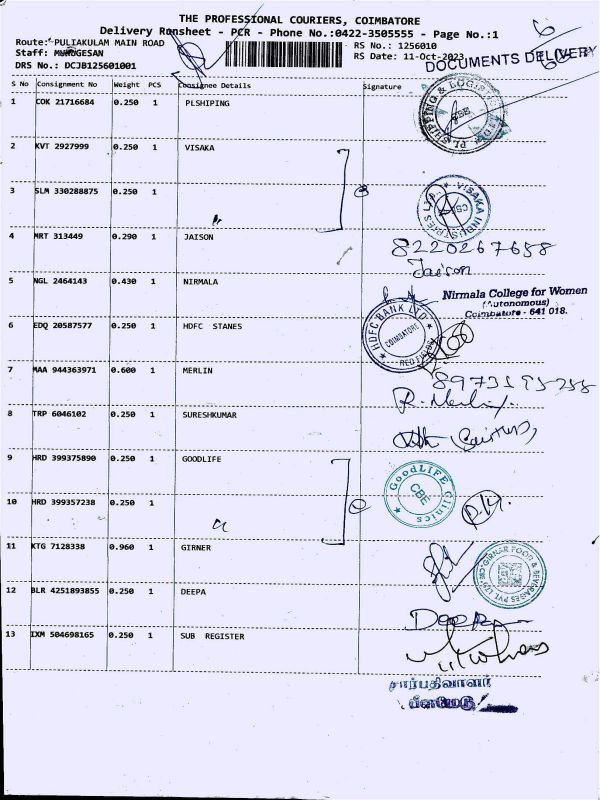 THE PROFESSIONAL COURIERS, COIMBATORE
Delivery Runsheet - PCR - Phone No.:0422-3505555 - Page No.:1
Route: PULIAKULAM MAIN ROAD
RS No.: 1256010
Staff: MURUGESAN
RS Date: 11-Oct-2023
DOCUMENTS DELIVERY
DRS No.: DCJB125601001
S No Consignment No Weight PCS Consignee Details Signature
1 COK 21716684 0.250 1 PLSHIPING
PL SHIPPING & LOGISTICS
2 KVT 2927999 0.250 1 VISAKA
3 SLM 330288875 0.250 1
VISAKA INDUSTRIES LTD
4 MRT 313449 0.290 1 JAISON
8220267658
Jaison
5 NGL 2464143 0.430 1 NIRMALA
Nirmala College for Women
(Autonomous)
Coimbatore - 641 018.
6 EDQ 20587577 0.250 1 HDFC STANES
HDFC BANK LTD
COIMBATORE
RED FIELDS
7 MAA 944363971 0.600 1 MERLIN
R. Merlin
8 TRP 6046102 0.250 1 SURESHKUMAR
9 HRD 399375890 0.250 1 GOODLIFE
GoodLIFE Clinics
CBE
10 HRD 399357238 0.250 1
11 KTG 7128338 0.960 1 GIRNER
GIRNAR FOOD & BEVERAGES PVT LTD
12 BLR 4251893855 0.250 1 DEEPA
Deepa
13 IXM 504698165 0.250 1 SUB REGISTER
சார்பதிவாளர்
பீளமேடு